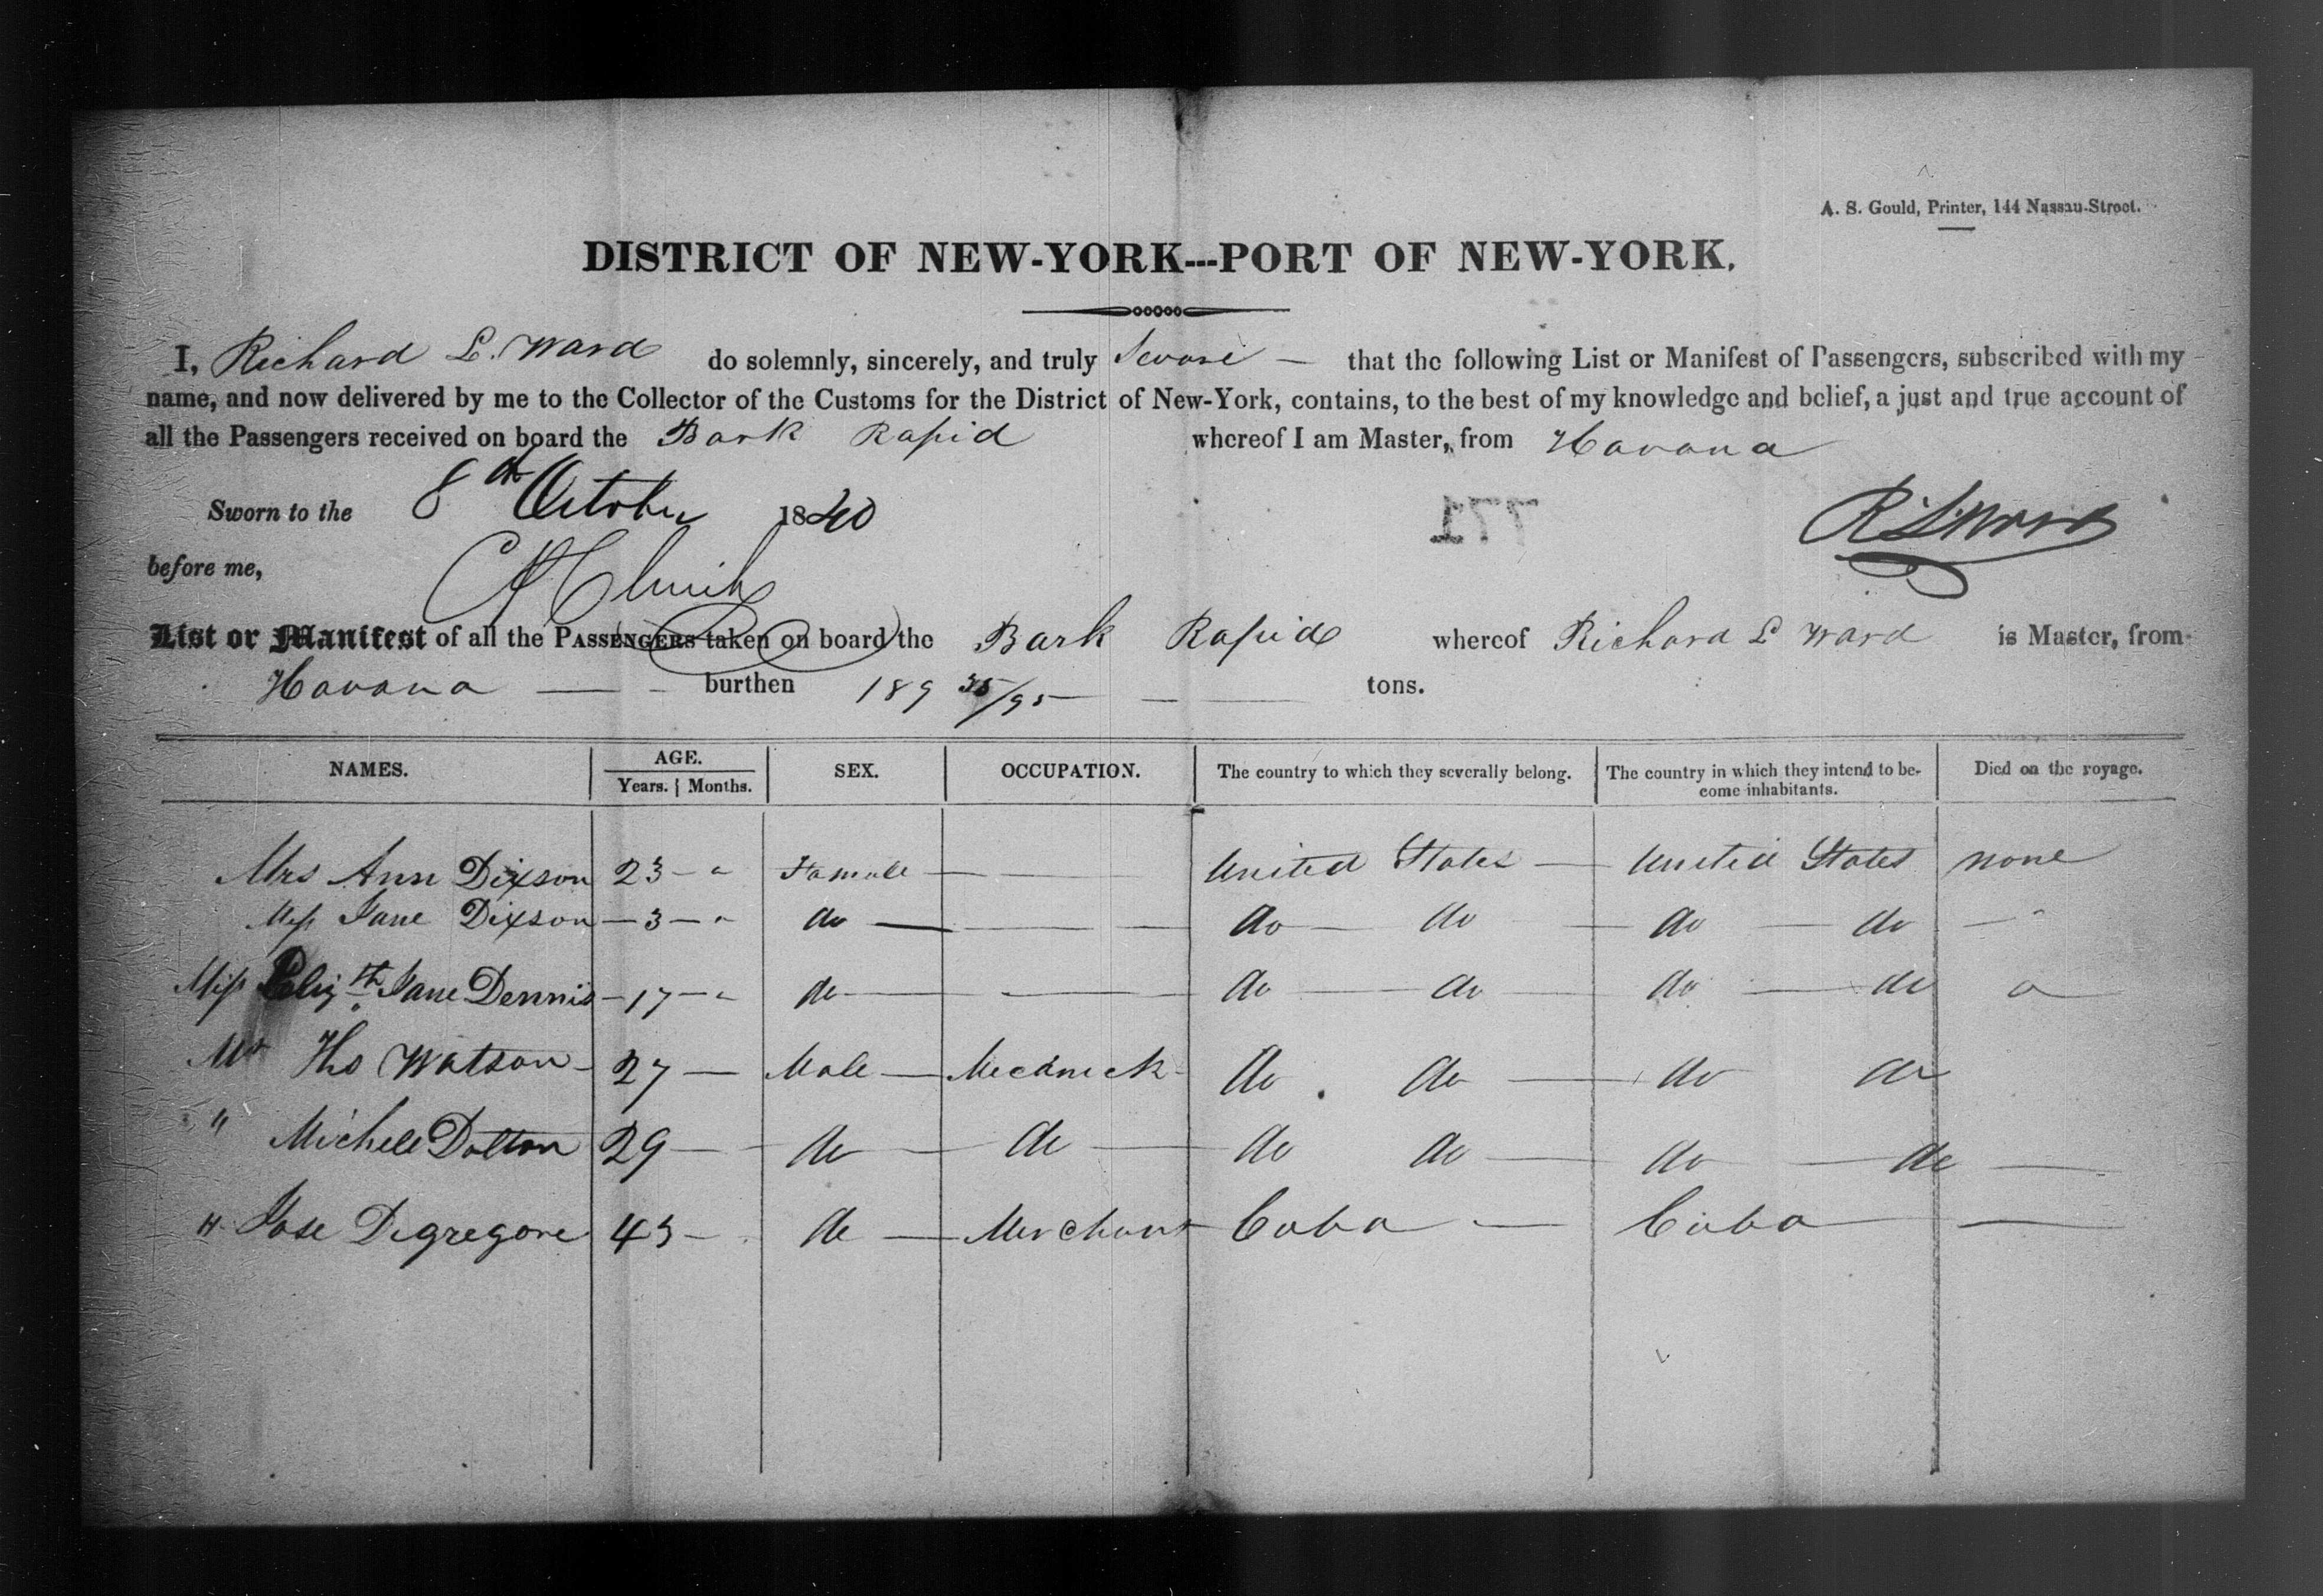 A. S. Gould, Printer, 144 Nassau-Street.
DISTRICT OF NEW-YORK---PORT OF NEW-YORK.
I, Richard L. Ward do solemnly, sincerely, and truly that the following List or Manifest of Passengers, subscribed with my
name, and now delivered by me to the Collector of the Customs for the District of New-York, contains, to the best of my knowledge and belief, a just and true account of
all the Passengers received on board the Bark Rapid whereof I am Master, from Havana
Sworn to the 8th October 1840
771
R L Ward
before me,
List or Manifest of all the PASSENGERS taken on board the Bark Rapid whereof Richard L Ward is Master, from
Havana burthen 189 35/95 tons.
NAMES. AGE. SEX. OCCUPATION. The country to which they severally belong. The country in which they intend to be-
come inhabitants. Died on the voyage.
Years. Months.
Mrs Ann Dixson 23 - " Famale — United States — United States none
Miss Jane Dixson — 3 — " do — — do — do — do — do — "
Miss Elizth Jane Dennis — 17 — " do — — do — do — do — do "
Mr Tho Watson — 27 — Male — Mecanick do do — do do
" Michell Dolton 29 — do — do — do do — do — do —
" Jose Degregore 43 — do — Merchant Cuba — Cuba — —